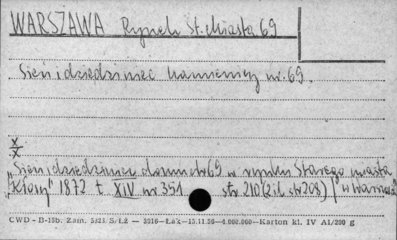 WARSZAWA Rynek St. Miasta 69
Sień i dziedziniec kamienicy nr. 69.
X
X
„Sień i dziedziniec domu nr 69 w rynku Starego miasta
„Kłosy" 1872 t. XIV nr 351 str. 210 (il. str 208) w Warszawie
CWD - B-15b. Zam. 5/23. S/Łż — 5516—Łak—15.11.56—4.000.000—Karton kl. IV A1/200 g